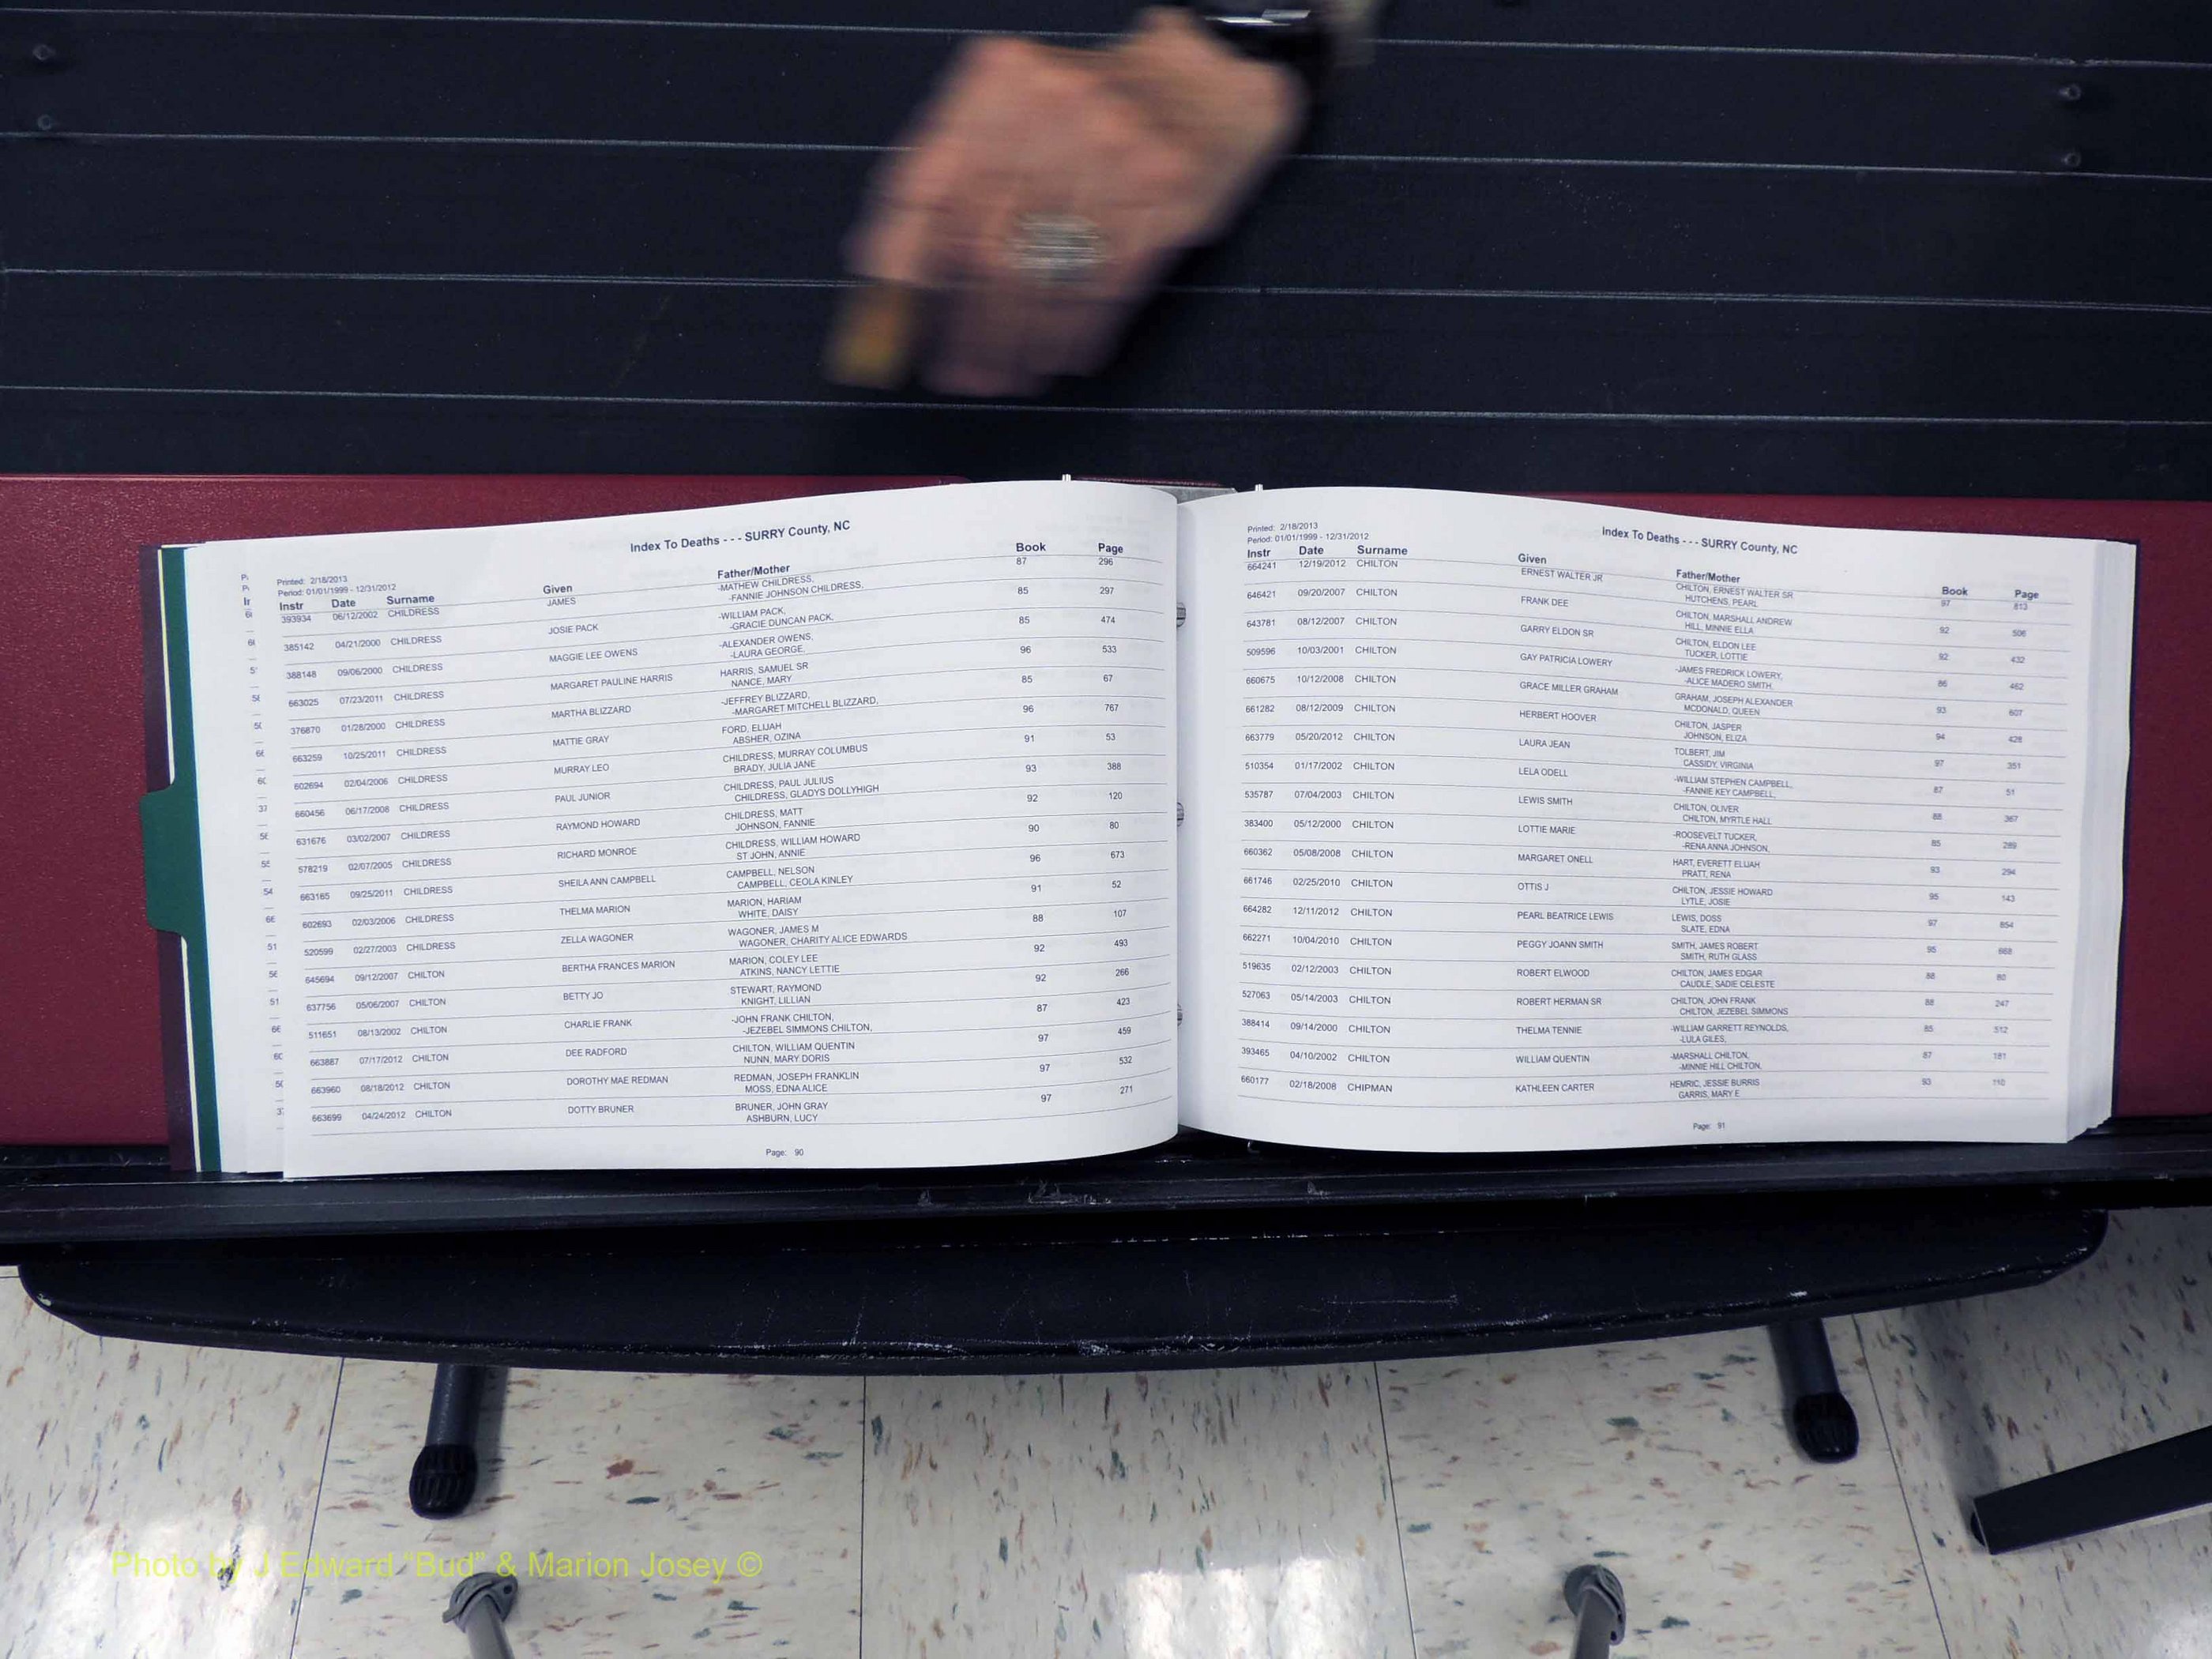 Index To Deaths - - - SURRY County, NC
Printed: 2/18/2013
Period: 01/01/1999 - 12/31/2012
Instr Date Surname Given Father/Mother Book Page
393934 06/12/2002 CHILDRESS JAMES -MATHEW CHILDRESS, 87 296
-FANNIE JOHNSON CHILDRESS,
385142 04/21/2000 CHILDRESS JOSIE PACK -WILLIAM PACK, 85 297
-GRACIE DUNCAN PACK,
388148 09/06/2000 CHILDRESS MAGGIE LEE OWENS -ALEXANDER OWENS, 85 474
-LAURA GEORGE,
663025 07/23/2011 CHILDRESS MARGARET PAULINE HARRIS HARRIS, SAMUEL SR 96 533
NANCE, MARY
376870 01/28/2000 CHILDRESS MARTHA BLIZZARD -JEFFREY BLIZZARD, 85 67
-MARGARET MITCHELL BLIZZARD,
663259 10/25/2011 CHILDRESS MATTIE GRAY FORD, ELIJAH 96 767
ABSHER, OZINA
602694 02/04/2006 CHILDRESS MURRAY LEO CHILDRESS, MURRAY COLUMBUS 91 53
BRADY, JULIA JANE
660456 06/17/2008 CHILDRESS PAUL JUNIOR CHILDRESS, PAUL JULIUS 93 388
CHILDRESS, GLADYS DOLLYHIGH
631676 03/02/2007 CHILDRESS RAYMOND HOWARD CHILDRESS, MATT 92 120
JOHNSON, FANNIE
578219 02/07/2005 CHILDRESS RICHARD MONROE CHILDRESS, WILLIAM HOWARD 90 80
ST JOHN, ANNIE
663165 09/25/2011 CHILDRESS SHEILA ANN CAMPBELL CAMPBELL, NELSON 96 673
CAMPBELL, CEOLA KINLEY
602693 02/03/2006 CHILDRESS THELMA MARION MARION, HARIAM 91 52
WHITE, DAISY
520599 02/27/2003 CHILDRESS ZELLA WAGONER WAGONER, JAMES M 88 107
WAGONER, CHARITY ALICE EDWARDS
645694 09/12/2007 CHILTON BERTHA FRANCES MARION MARION, COLEY LEE 92 493
ATKINS, NANCY LETTIE
637756 05/06/2007 CHILTON BETTY JO STEWART, RAYMOND 92 266
KNIGHT, LILLIAN
511651 08/13/2002 CHILTON CHARLIE FRANK -JOHN FRANK CHILTON, 87 423
-JEZEBEL SIMMONS CHILTON,
663887 07/17/2012 CHILTON DEE RADFORD CHILTON, WILLIAM QUENTIN 97 459
NUNN, MARY DORIS
663960 08/18/2012 CHILTON DOROTHY MAE REDMAN REDMAN, JOSEPH FRANKLIN 97 532
MOSS, EDNA ALICE
663699 04/24/2012 CHILTON DOTTY BRUNER BRUNER, JOHN GRAY 97 271
ASHBURN, LUCY
Page: 90
Index To Deaths - - - SURRY County, NC
Printed: 2/18/2013
Period: 01/01/1999 - 12/31/2012
Instr Date Surname Given Father/Mother Book Page
664241 12/19/2012 CHILTON ERNEST WALTER JR CHILTON, ERNEST WALTER SR 97 813
HUTCHENS, PEARL
646421 09/20/2007 CHILTON FRANK DEE CHILTON, MARSHALL ANDREW 92 506
HILL, MINNIE ELLA
643781 08/12/2007 CHILTON GARRY ELDON SR CHILTON, ELDON LEE 92 432
TUCKER, LOTTIE
509596 10/03/2001 CHILTON GAY PATRICIA LOWERY -JAMES FREDRICK LOWERY, 86 462
-ALICE MADERO SMITH,
660675 10/12/2008 CHILTON GRACE MILLER GRAHAM GRAHAM, JOSEPH ALEXANDER 93 607
MCDONALD, QUEEN
661282 08/12/2009 CHILTON HERBERT HOOVER CHILTON, JASPER 94 428
JOHNSON, ELIZA
663779 05/20/2012 CHILTON LAURA JEAN TOLBERT, JIM 97 351
CASSIDY, VIRGINIA
510354 01/17/2002 CHILTON LELA ODELL -WILLIAM STEPHEN CAMPBELL, 87 51
-FANNIE KEY CAMPBELL,
535787 07/04/2003 CHILTON LEWIS SMITH CHILTON, OLIVER 88 367
CHILTON, MYRTLE HALL
383400 05/12/2000 CHILTON LOTTIE MARIE -ROOSEVELT TUCKER, 85 289
-RENA ANNA JOHNSON,
660362 05/08/2008 CHILTON MARGARET ONELL HART, EVERETT ELIJAH 93 294
PRATT, RENA
661746 02/25/2010 CHILTON OTTIS J CHILTON, JESSIE HOWARD 95 143
LYTLE, JOSIE
664282 12/11/2012 CHILTON PEARL BEATRICE LEWIS LEWIS, DOSS 97 854
SLATE, EDNA
662271 10/04/2010 CHILTON PEGGY JOANN SMITH SMITH, JAMES ROBERT 95 668
SMITH, RUTH GLASS
519635 02/12/2003 CHILTON ROBERT ELWOOD CHILTON, JAMES EDGAR 88 80
CAUDLE, SADIE CELESTE
527063 05/14/2003 CHILTON ROBERT HERMAN SR CHILTON, JOHN FRANK 88 247
CHILTON, JEZEBEL SIMMONS
388414 09/14/2000 CHILTON THELMA TENNIE -WILLIAM GARRETT REYNOLDS, 85 512
-LULA GILES,
393465 04/10/2002 CHILTON WILLIAM QUENTIN -MARSHALL CHILTON, 87 181
-MINNIE HILL CHILTON,
660177 02/18/2008 CHIPMAN KATHLEEN CARTER HEMRIC, JESSIE BURRIS 93 110
GARRIS, MARY E
Page: 91
Photo by J Edward "Bud" & Marion Josey ©